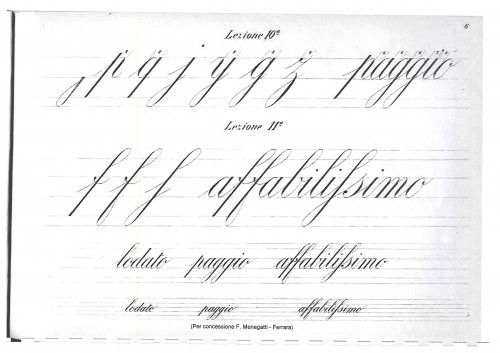 Lezione 10ª
p q j y g z paggio
Lezione 11ª
f f ſ affabiliſsimo
lodato paggio affabiliſsimo
lodato paggio affabiliſsimo
(Per concessione F. Menegatti - Ferrara)